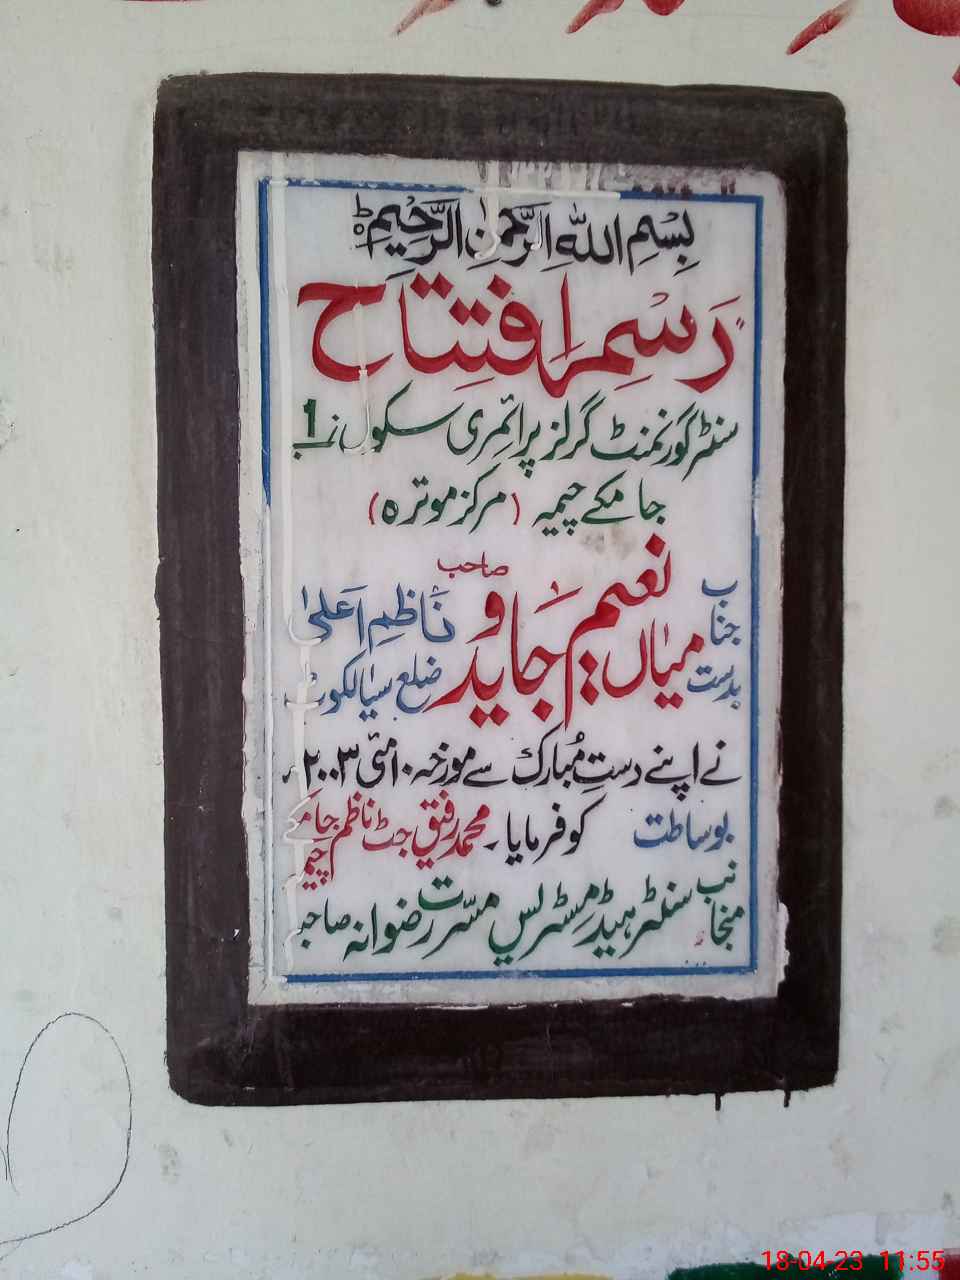 بِسْمِ اللّٰهِ الرَّحْمٰنِ الرَّحِيْمِ ط
رسمِ افتتاح
سنٹر گورنمنٹ گرلز پرائمری سکول نمبر 1
جامکے چیمہ (مرکز موترہ)
جناب بدست میاں نعیم جاوید صاحب ناظمِ اعلیٰ ضلع سیالکوٹ
نے اپنے دستِ مُبارک سے مورخہ ۱۰ مئی ۲۰۰۳ء
بوساطت کو فرمایا۔ محمد رفیق جٹ ناظم جامکے چیمہ
منجانب سنٹر ہیڈ مِسٹریس مسّرت رضوانہ صاحبہ
18-04-23 11:55